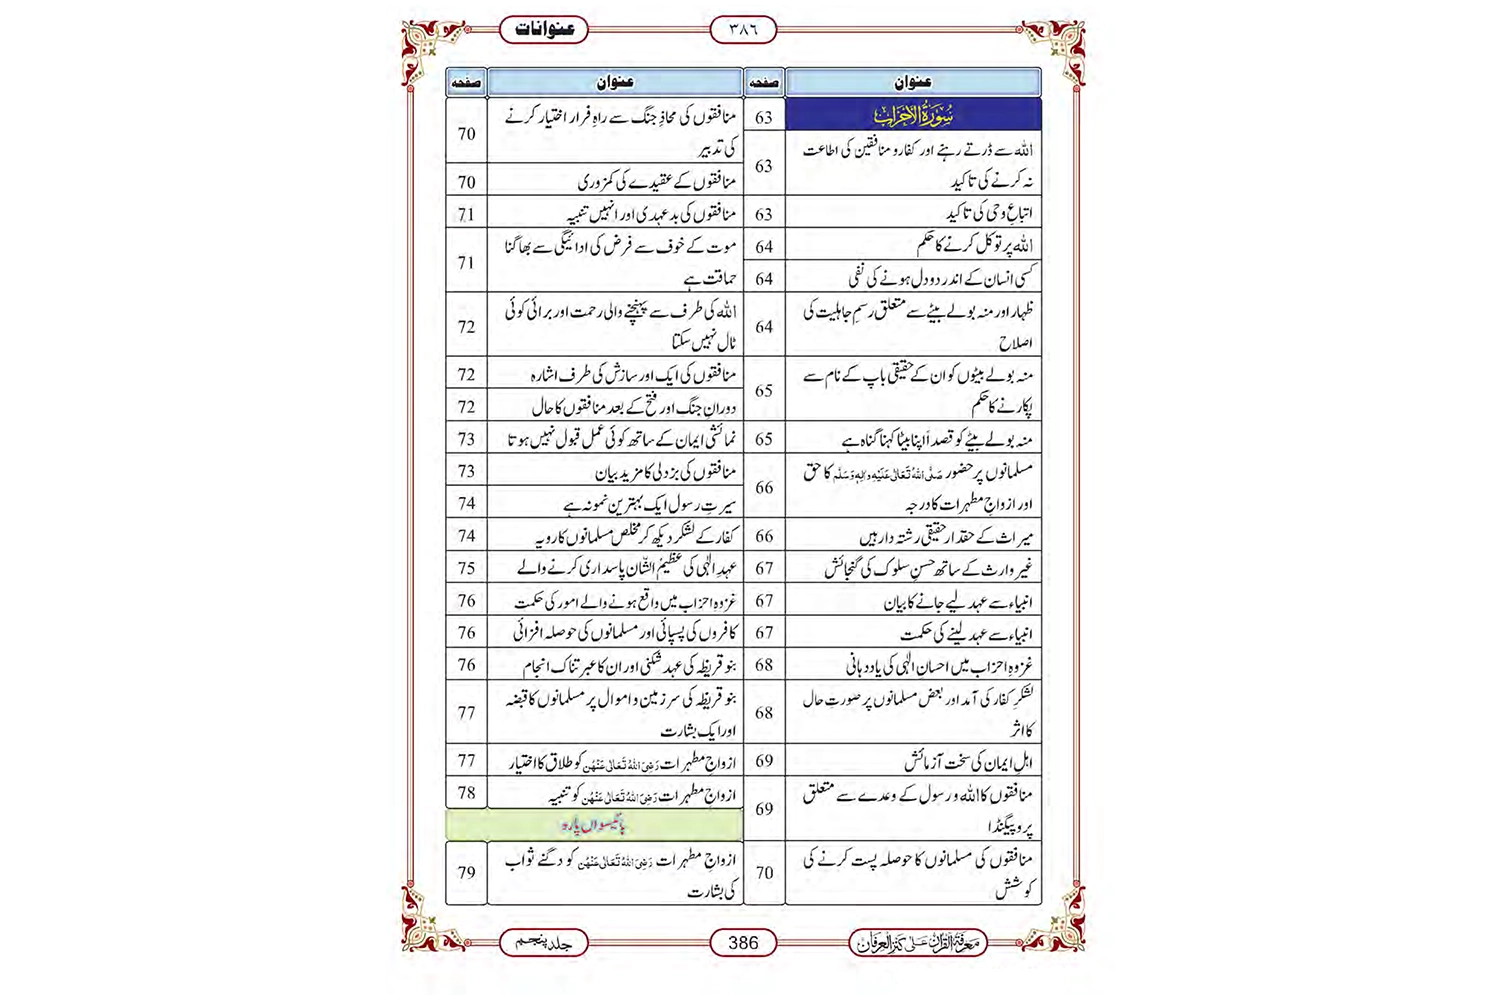 عنوانات
۳۸۶
عنوان صفحہ
سُوْرَۃُ الْاَحْزَاب 63
اللہ سے ڈرتے رہنے اور کفار و منافقین کی اطاعت
نہ کرنے کی تاکید 63
اتباعِ وحی کی تاکید 63
اللہ پر توکل کرنے کا حکم 64
کسی انسان کے اندر دو دل ہونے کی نفی 64
ظہار اور منہ بولے بیٹے سے متعلق رسمِ جاہلیت کی
اصلاح 64
منہ بولے بیٹوں کو ان کے حقیقی باپ کے نام سے
پکارنے کا حکم 65
منہ بولے بیٹے کو قصداً اپنا بیٹا کہنا گناہ ہے 65
مسلمانوں پر حضور صَلَّی اللہُ تَعَالٰی عَلَیْہِ وَاٰلِہٖ وَسَلَّم کا حق
اور ازواجِ مطہرات کا درجہ 66
میراث کے حقدار حقیقی رشتہ دار ہیں 66
غیر وارث کے ساتھ حسنِ سلوک کی گنجائش 67
انبیاء سے عہد لیے جانے کا بیان 67
انبیاء سے عہد لینے کی حکمت 67
غزوۂ احزاب میں احسانِ الٰہی کی یاددہانی 68
لشکرِ کفار کی آمد اور بعض مسلمانوں پر صورتِ حال
کا اثر 68
اہلِ ایمان کی سخت آزمائش 69
منافقوں کا اللہ و رسول کے وعدے سے متعلق
پروپیگنڈا 69
منافقوں کی مسلمانوں کا حوصلہ پست کرنے کی
کوشش 70
عنوان صفحہ
منافقوں کی محاذِ جنگ سے راہِ فرار اختیار کرنے
کی تدبیر 70
منافقوں کے عقیدے کی کمزوری 70
منافقوں کی بدعہدی اور انہیں تنبیہ 71
موت کے خوف سے فرض کی ادائیگی سے بھاگنا
حماقت ہے 71
اللہ کی طرف سے پہنچنے والی رحمت اور برائی کوئی
ٹال نہیں سکتا 72
منافقوں کی ایک اور سازش کی طرف اشارہ 72
دورانِ جنگ اور فتح کے بعد منافقوں کا حال 72
نمائشی ایمان کے ساتھ کوئی عمل قبول نہیں ہوتا 73
منافقوں کی بزدلی کا مزید بیان 73
سیرتِ رسول ایک بہترین نمونہ ہے 74
کفار کے لشکر دیکھ کر مخلص مسلمانوں کا رویہ 74
عہدِ الٰہی کی عظیمُ الشّان پاسداری کرنے والے 75
غزوۂ احزاب میں واقع ہونے والے امور کی حکمت 76
کافروں کی پسپائی اور مسلمانوں کی حوصلہ افزائی 76
بنو قریظہ کی عہد شکنی اور ان کا عبرتناک انجام 76
بنو قریظہ کی سرزمین و اموال پر مسلمانوں کا قبضہ
اور ایک بشارت 77
ازواجِ مطہرات رَضِیَ اللہُ تَعَالٰی عَنْہُن کو طلاق کا اختیار 77
ازواجِ مطہرات رَضِیَ اللہُ تَعَالٰی عَنْہُن کو تنبیہ 78
بائیسواں پارہ
ازواجِ مطہرات رَضِیَ اللہُ تَعَالٰی عَنْہُن کو دگنے ثواب
کی بشارت 79
معرفۃ القرآن علیٰ کنز العرفان
386
جلد پنجم